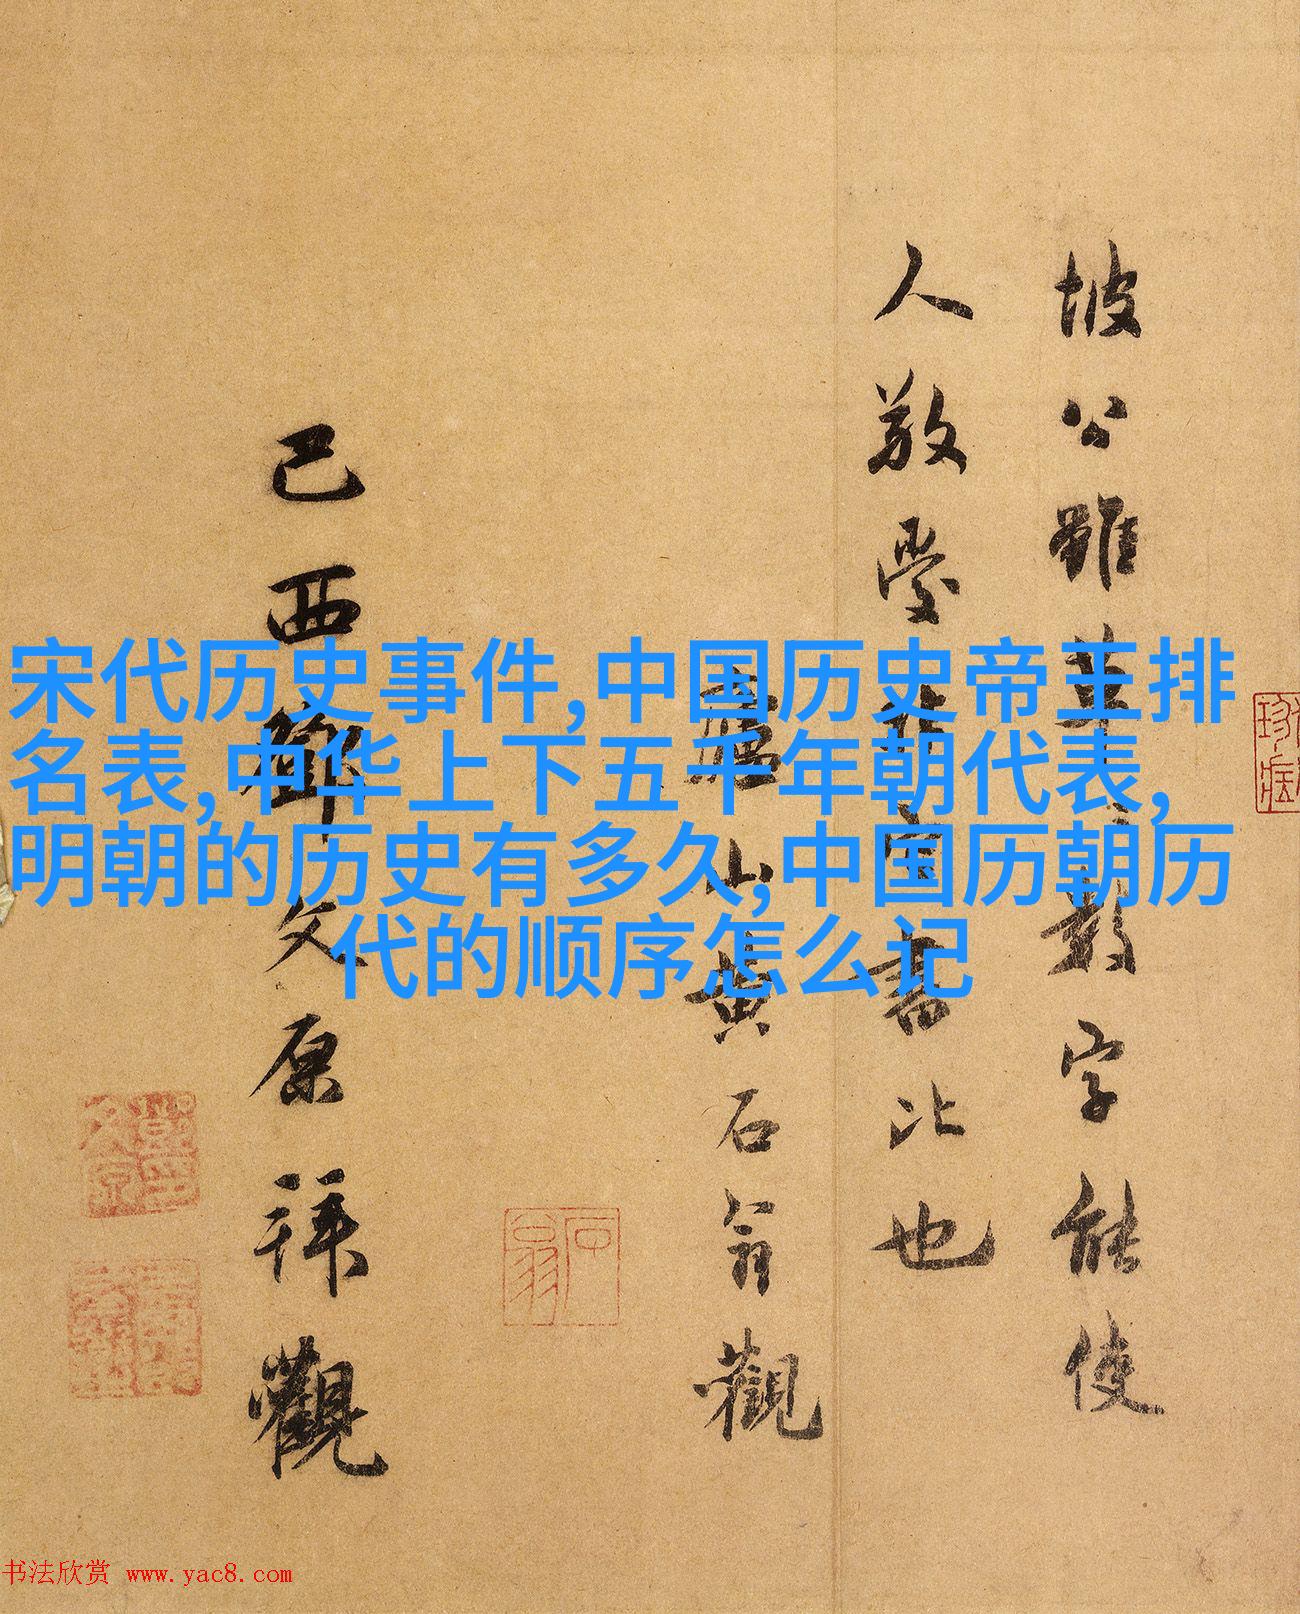 坡公雖草草數字能使
人敬愛
書比也
廬山黄石翁觀
己酉鄧文原拜觀
宋代历史事件,中国历史帝王排
名表,中华上下五千年朝代表,
明朝的历史有多久,中国历朝历
代的顺序怎么记
石翁
书法欣赏 www.yac8.com